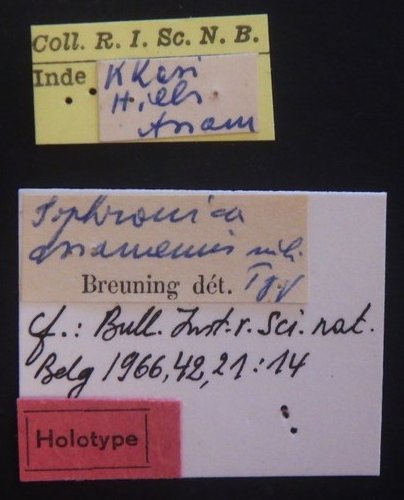 Coll. R. I. Sc. N. B.
Inde Khasi
Hills
Assam
Sophronica
assamensis mihi
Typ
Breuning dét.
cf.: Bull. Inst. r. Sci. nat.
Belg 1966, 42, 21:14
Holotype